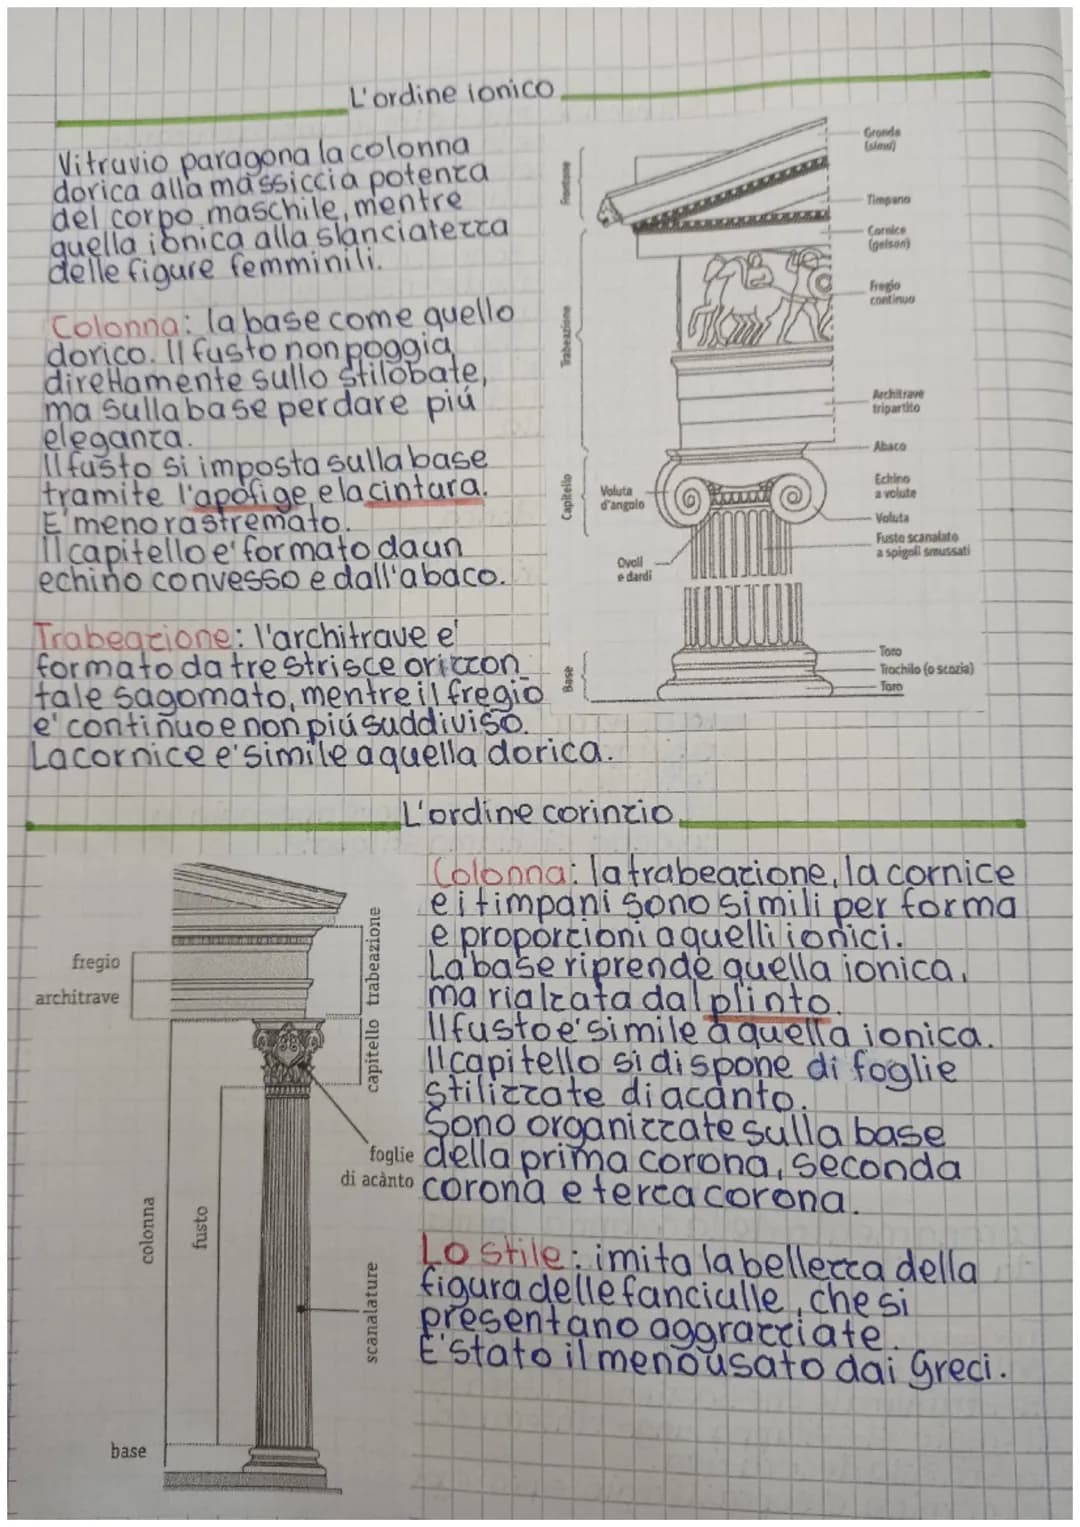 L'ordine ionico
Vitruvio paragona la colonna
dorica alla massiccia potenza
del corpo maschile, mentre
quella ionica alla slanciatezza
delle figure femminili.
Colonna: la base come quello
dorico. Il fusto non poggia
direttamente sullo stilobate,
ma sulla base per dare piú
eleganza.
Il fusto si imposta sulla base
tramite l'apofige e la cintura.
E' meno rastremato.
Il capitello e' formato da un
echino convesso e dall'abaco.
Trabeazione: l'architrave e'
formato da tre strisce orizzon
tale sagomato, mentre il fregio
e' continuo e non piú suddiviso.
La cornice e' simile a quella dorica.
Frontone
Trabeazione
Capitello
Base
Gronda
(sima)
Timpano
Cornice
(geison)
Fregio
continuo
Architrave
tripartito
Abaco
Echino
a volute
Voluta
d'angolo
Voluta
Fusto scanalato
a spigoli smussati
Ovoli
e dardi
Toro
Trochilo (o scozia)
Toro
L'ordine corinzio
Colonna: la trabeazione, la cornice
e i timpani sono simili per forma
e proporzioni a quelli ionici.
La base riprende quella ionica,
ma rialzata dal plinto.
Il fusto e' simile a quella ionica.
Il capitello si dispone di foglie
stilizzate di acanto.
Sono organizzate sulla base
della prima corona, seconda
corona e terza corona.
Lo stile: imita la bellezza della
figura delle fanciulle, che si
presentano aggrazziate.
E' stato il meno usato dai Greci.
fregio
architrave
trabeazione
capitello
foglie
di acànto
colonna
fusto
scanalature
base